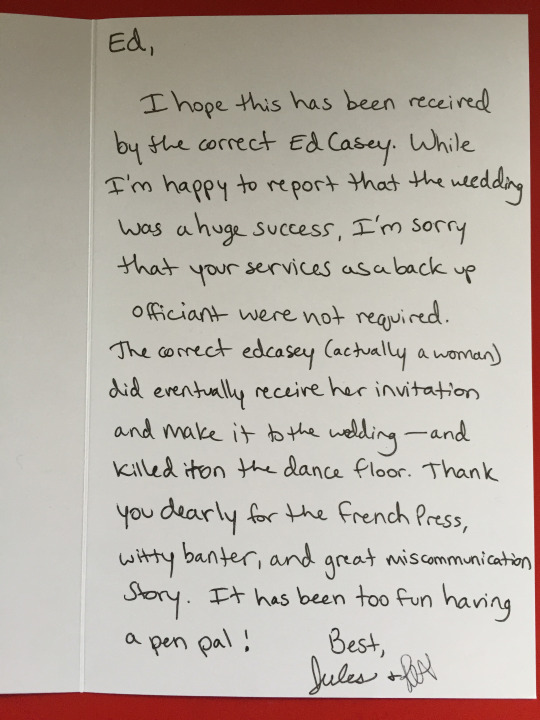 Ed,
I hope this has been received
by the correct Ed Casey. While
I'm happy to report that the weedding
was a huge success, I'm sorry
that your services as a back up
officiant were not required.
The correct edcasey (actually a woman)
did eventually receive her invitation
and make it to the wedding — and
killed it on the dance floor. Thank
you dearly for the French Press,
witty banter, and great miscommunication
story. It has been too fun having
a pen pal! Best,
Jules +